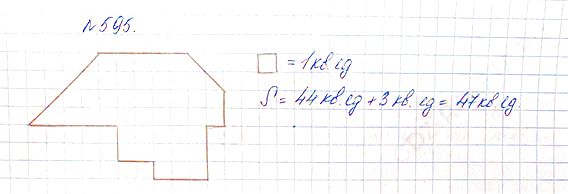 №595.
= 1 кв. ед
S = 44 кв. ед + 3 кв. ед = 47 кв. ед.